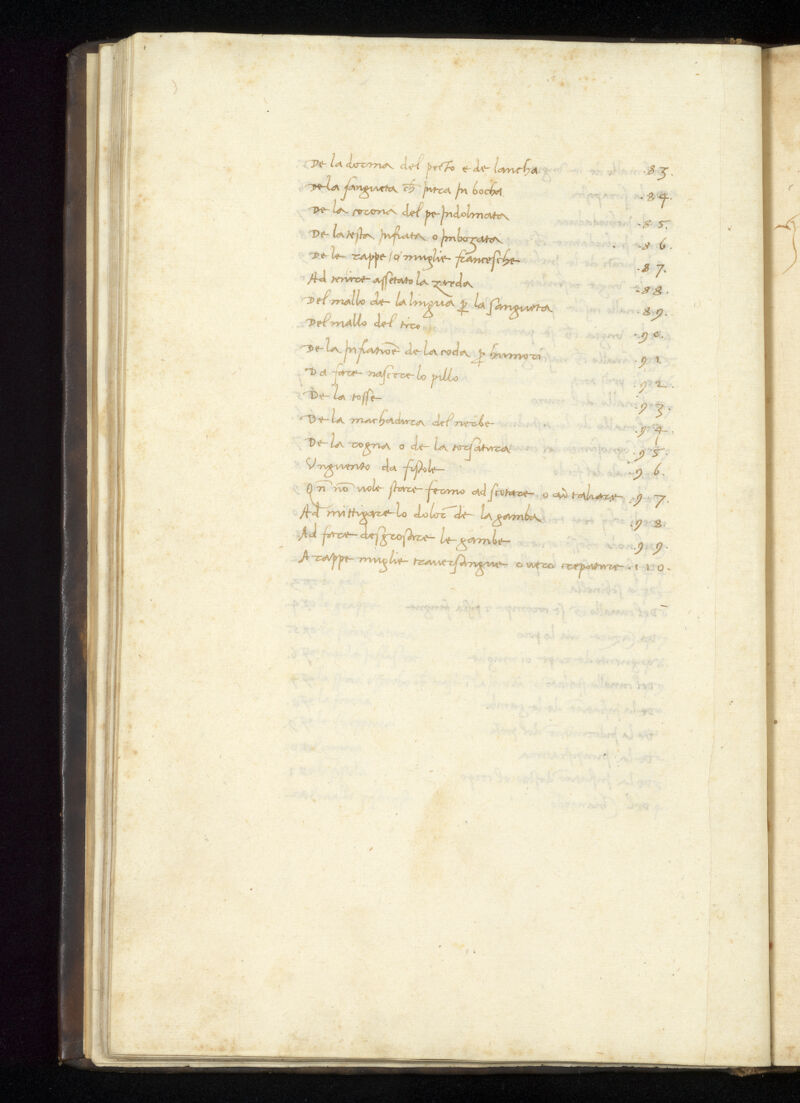 De la dorma del pecto e de lancha .83.
De la sangueta ch̄ intra in bocha .84.
De la corona del pe indolmata .85.
De la testa infiata o imbozata .86.
De le rappe o muglie francesche .87.
Ad tenire assetato la zreda .88.
Del mallo de la lingua p̄ la sangueta .89.
Del mallo del tiro .90.
De la infiatiōe de la coda p̄ humori .91.
Da fare nascere lo pillo .92.
De la tosse .93.
De la machadura del nerbe .94.
De la rogna o de la scorsatura .95.
Unguento da fistole .96.
Qn̄ nō vole stare fermo ad scotare o ad tahare .97.
Ad mittigare lo dolor de la gamba .98.
Ad fare desgrosare le gambe .99.
A rappe muglie traversangue o vero crepature .110.